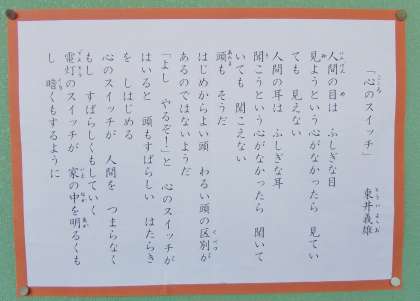 「心のスイッチ」
東井義雄
人間の目は ふしぎな目
見ようという心がなかったら 見てい
ても 見えない
人間の耳は ふしぎな耳
聞こうという心がなかったら 聞いて
いても 聞こえない
頭も そうだ
はじめからよい頭 わるい頭の区別が
あるのではないようだ
「よし やるぞ!」と 心のスイッチが
はいると 頭もすばらしい はたらき
を しはじめる
心のスイッチが 人間を つまらなく
もし すばらしくもしていく
電灯のスイッチが 家の中を明るくも
し 暗くもするように